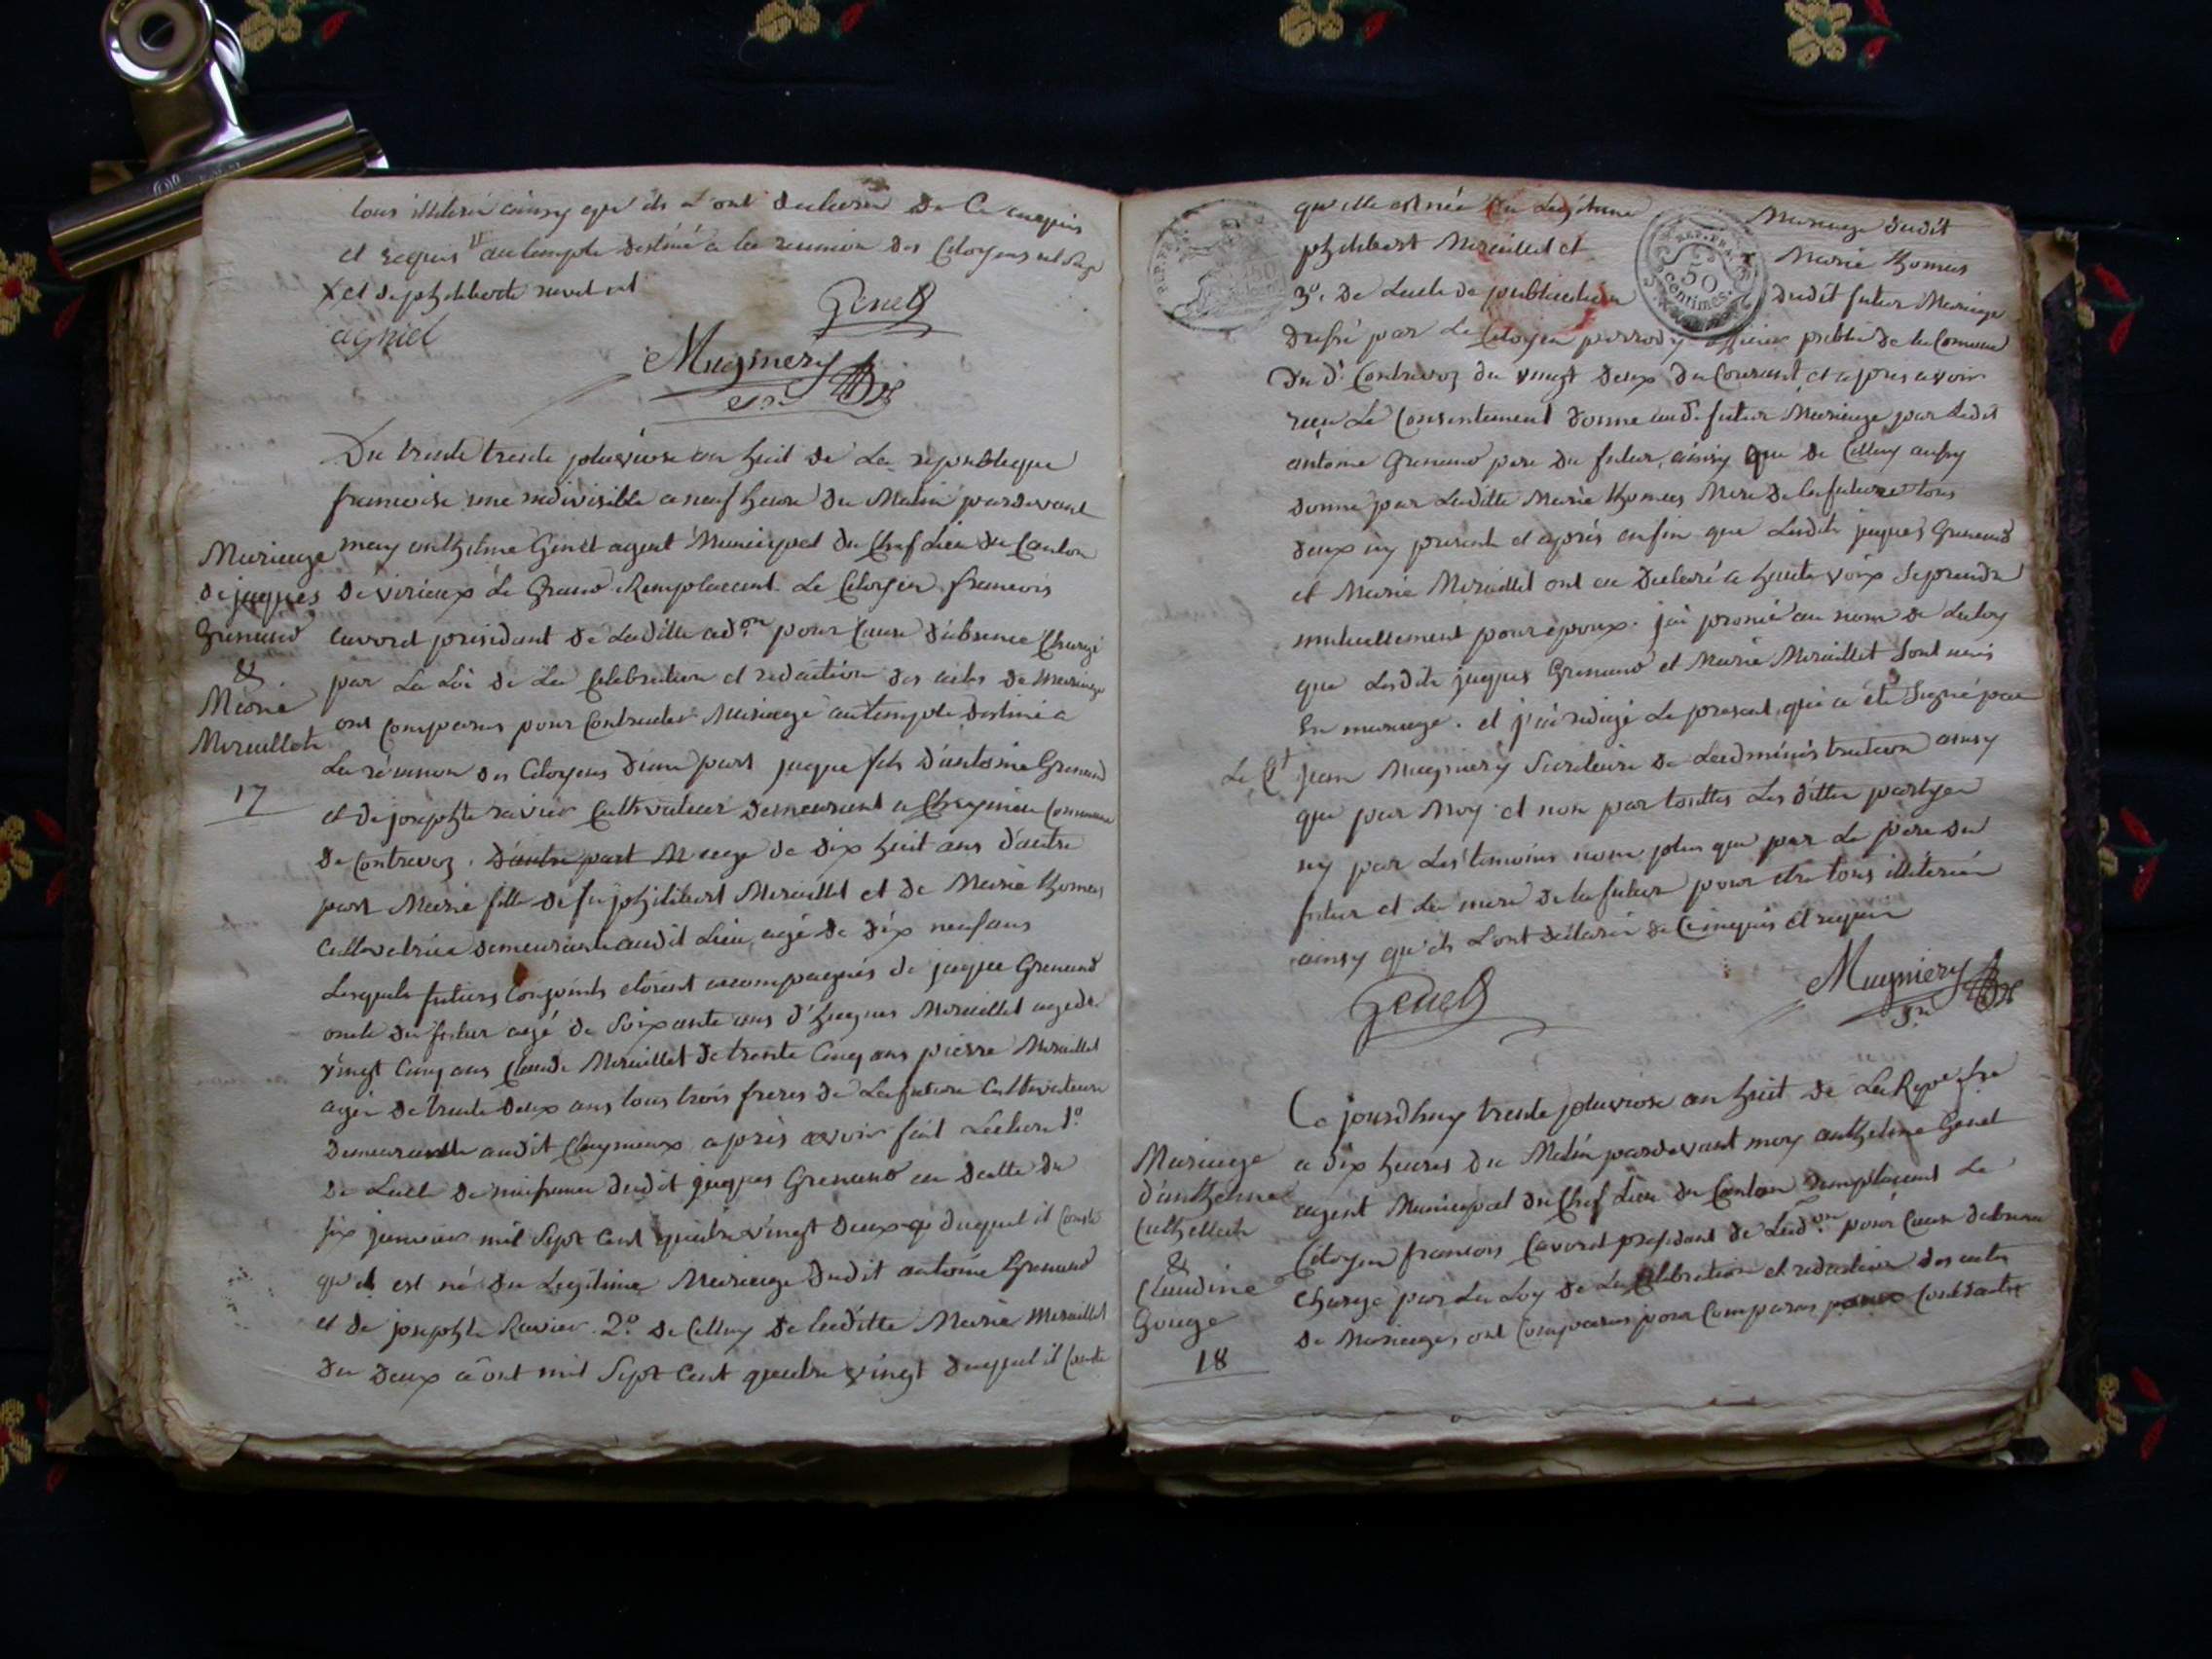 tous illiteré ainsy qu'ils l'ont declaré de ce enquis
et requis au temple destiné a la reunion des Citoyens
X et de philiberte
agniel
Genet
Mugniery
Du trente trente pluviose an huit de La republique
francoise une indivisible a neuf heure du Matin pardevant
moy anthelme Genet agent Municipal du Chef Lieu du Canton
de virieux Le Grand Remplacant Le Citoyen francois
Cavord president de Laditte ad.on pour Cause d'absence Chargé
par La Loi de La Celebration et redaction des actes de Mariage
ont comparus pour Contracter Mariage au temple destiné a
La réunion des Citoyens d'une part jaque fils d'antoine Grenand
et de josephte ravier Cultivateur demeurant a Cheignieu Commune
de Contrevoz. d'autre part M age de dix huit ans d'autre
part Marie fille de fu philibert Miraillet et de Marie thomas
Cultivatrice demeurante audit Lieu, agé de dix neuf ans
Lesquels futurs Conjoints étoient accompagnés de jaque Grenand
oncle du futur agé de Soixante ans d'hugues Miraillet agé de
vingt Cinq ans Claude Miraillet de trente Cinq ans pierre Miraillet
agée de trente deux ans tous trois freres de La future Cultivateurs
demeurants audit Cheignieux après avoir fait Lecture 1°
de L'acte de naissance dudit jaques Grenand en datte du
six janvier mil Sept Cent quatre vingt deux duquel il Conste
qu'il est né du Legitime Mariage dudit antoine Grenand
et de josephte Ravier. 2° de Celluy de laditte Marie Miraillet
du deux août mil Sept Cent quatre vingt duquel il Conste
Mariage
de jaques
Grenand
&
Marie
Miraillet
17
qu'elle est née du Legitime Mariage dudit
philibert Miraillet et Marie thomas
3°. de L'acte de publication dudit futur Mariage
REP. FRA.
50
centimes
dressé par Le Citoyen perrody officier public de la Comune
du d.t Contrevoz du vingt deux du Courant, et apres avoir
reçu Le Consentement donné aud. futur Mariage par Ledit
antoine Grenand pere du futur, ainsy que de Celluy aussy
donné par Laditte Marie thomas Mere de la future tous
deux icy present et après enfin que Lesdits jaques Grenand
et Marie Miraillet ont eu declaré a haute voix Se prendre
mutuellement pour epoux. j'ai pronncé au nom de La loy
que Lesdits jaques Grenand et Marie Miraillet Sont unis
en mariage. et j'ai redigé Le present qui a été Signé par
Le C.t jean Mugniery Secretaire de L'administration ainsy
que par Moy et non par touttes Les dittes partyes
ny par Les temoins nom plus que par Le pere du
futur et La mere de la future pour etre tous illiterée
ainsy qu'ils L'ont déclaré de Ce enquis et requis
Genet
Mugniery
Ce jourdhuy trente pluviose an huit de La Rep.e fse
a dix heures du Matin pardevant moy anthelme Genet
agent Municipal du Chef Lieu du Canton Remplacent Le
Citoyen francois Cavord president de Lad.on pour Cause dabsence
Chargé par La Loy de La Celebration et redaction des actes
de Mariages, ont Comparus pour Comparus pour Contracter
Mariage
d'anthelme
&
Claudine
Gouge
18